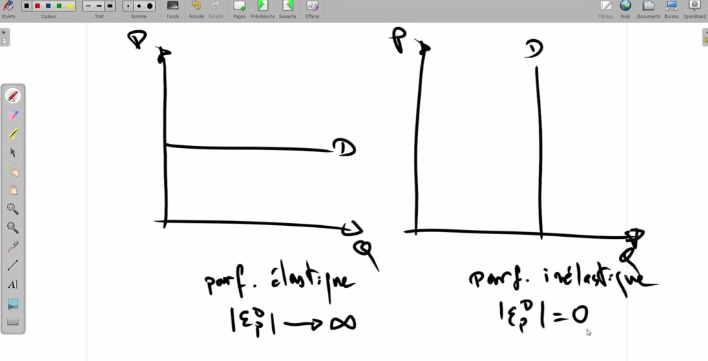 Stylets Couleur Trait Gomme Fonds Annuler Refaire Pages Précédente Suivante Effacer Tableau Web Documents Bureau OpenBoard
P
D
Q
parf. élastique
|ε_p^D| → ∞
P
D
Q
parf. inélastique
|ε_p^D| = 0